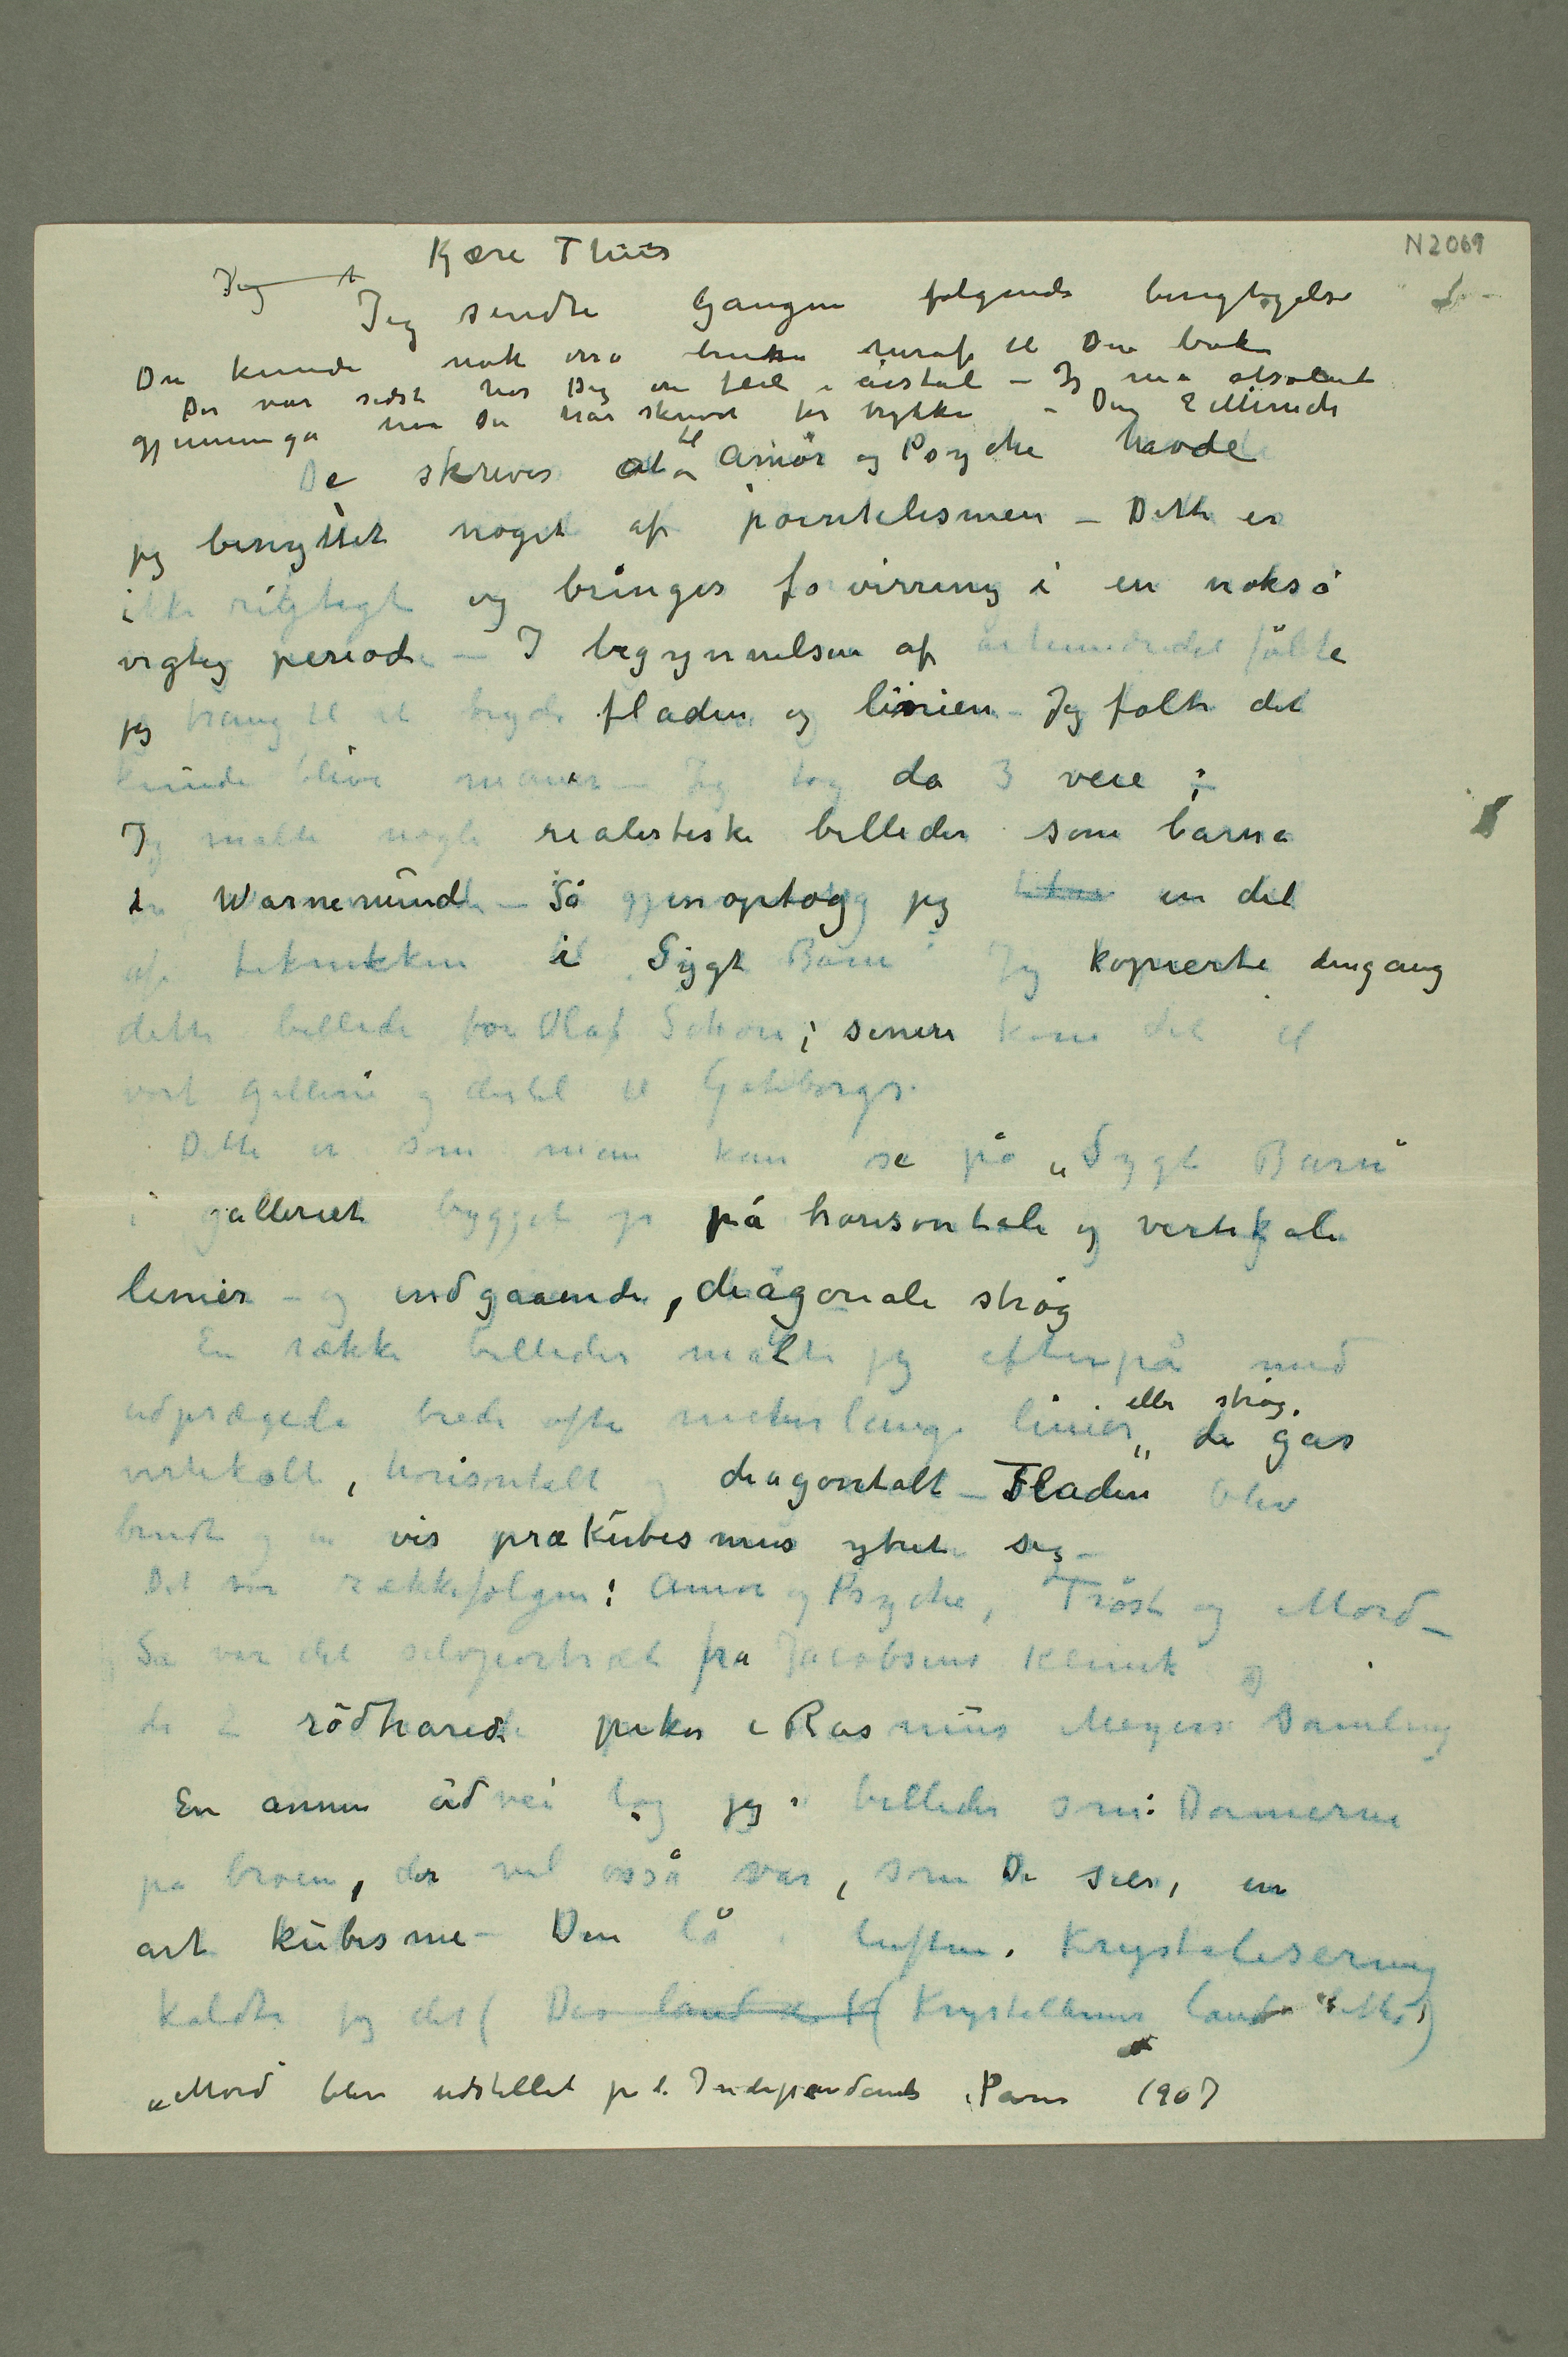 N 2069
Kjære Thiis
Jeg
Jeg sendte Gaugin følgende berigtigelse
Du kunde nok osså bruke heraf til Din bok
Der var sidst hos Dig en feil i årstal – Jeg må absolut
gjennemgå hva Du har skrevet før trykken – Din E Munch
De skriver at til Amor og Psyche havde
jeg benyttet noget af pointelismen – Dette er
ikke rigtigt og bringer forvirring i en nokså
vigtig periode – I begynnelsen af århundredet følte
jeg trang til at bryde fladen og linien – Jeg følte det
kunde blive maner – Jeg tog da 3 veie :
Jeg malte nogle realistiske billeder som barna
i Warnemünde – Så gjenoptog jeg en del
af teknikken i Sygt Barn" Jeg kopierte dengang
dette billede for Olaf Schou ; senere kom det til
vort galleri og dertil til Gøteborg.
Dette er som man kan se på „Sygt Barn"
i galleriet bygget op på horisontale og vertikale
linier – og indgaaende, diagonale strøg
En række billeder malte jeg efterpå med
udprægede brede ofte meterlange linier eller strøg, de går
vertikalt, horisontalt og diagontalt – Fladen blev
brudt og en vis prækubismus ytret sig –
Det var rækkefølgen : Amor og Psyche, Trøst og Mord –
Så var det selvportræt fra Jacobsens klinik og
de 2 rødhårede piker i Rasmus Meyers Samling
En annen udvei tog jeg i billeder som : Damerne
på broen, der vel osså var, som De sier, en
art kubisme – Den lå i luften. Krystalisering
kaldte jeg det ( Des land des K ( Krystallernes land
„Mord blev udstillet på l. Independants i Paris 1907